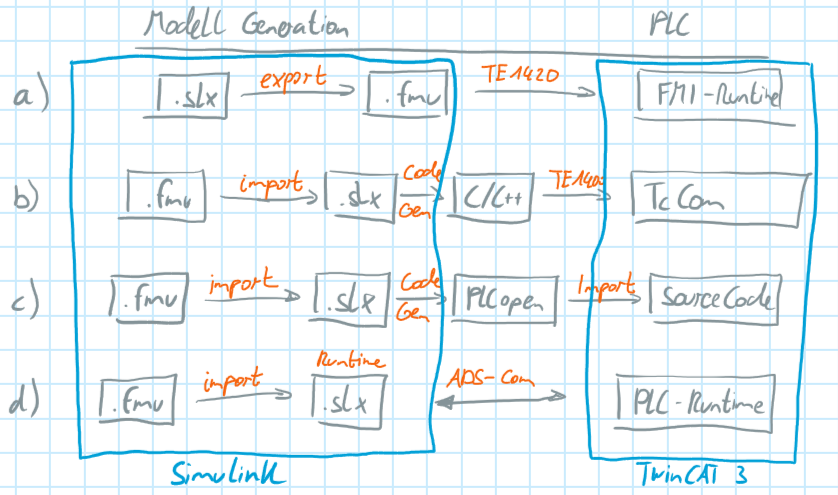 Modell Generation PLC
a) .slx export .fmu TE1420 FMI-Runtime
b) .fmu import .slx Code Gen C/C++ TE1400 TcCom
c) .fmu import .slx Code Gen PLCopen Import SourceCode
d) .fmu import Runtime .slx ADS-Com PLC-Runtime
Simulink TwinCAT 3